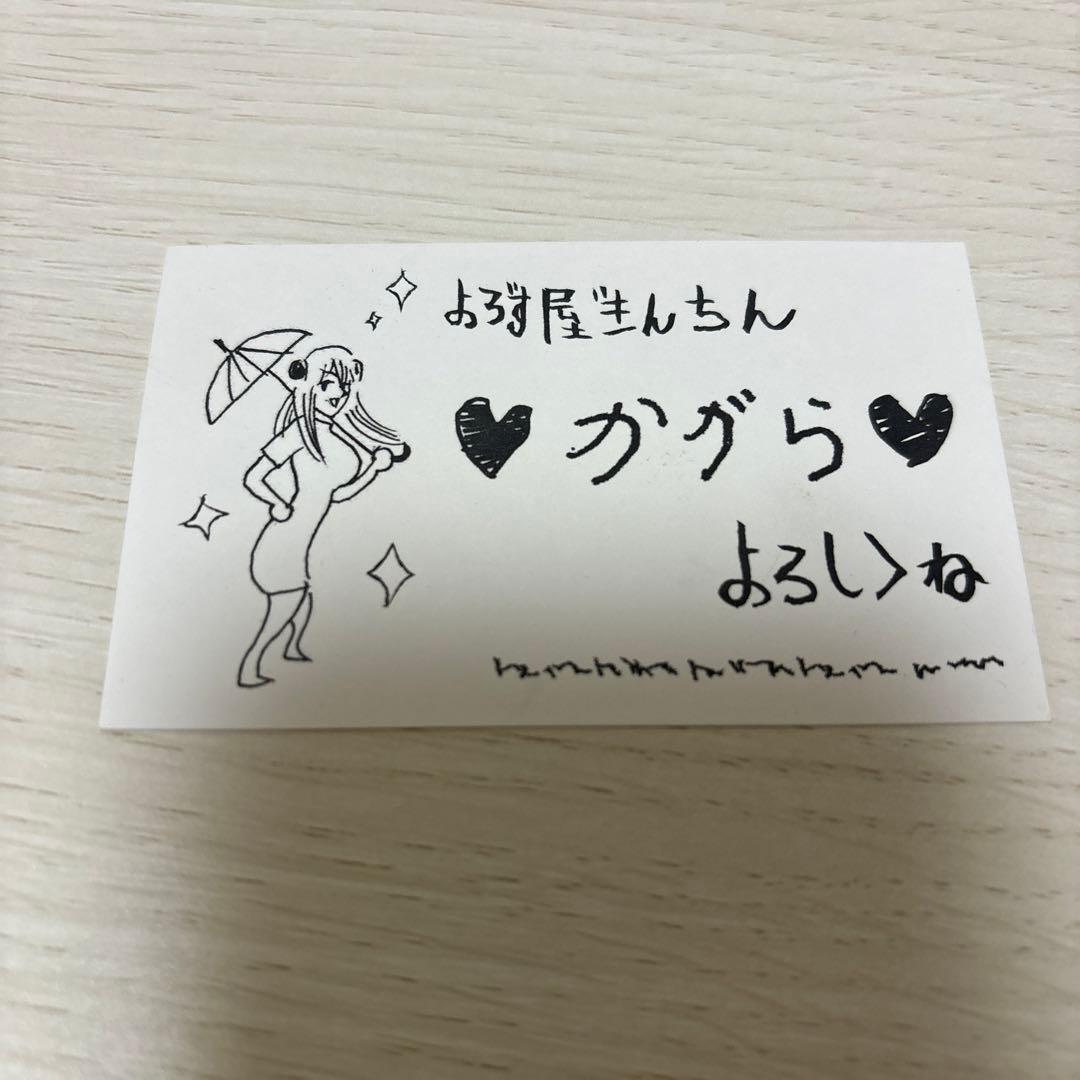 よろず屋ぎんちん
♥かがら♥
よろしくね